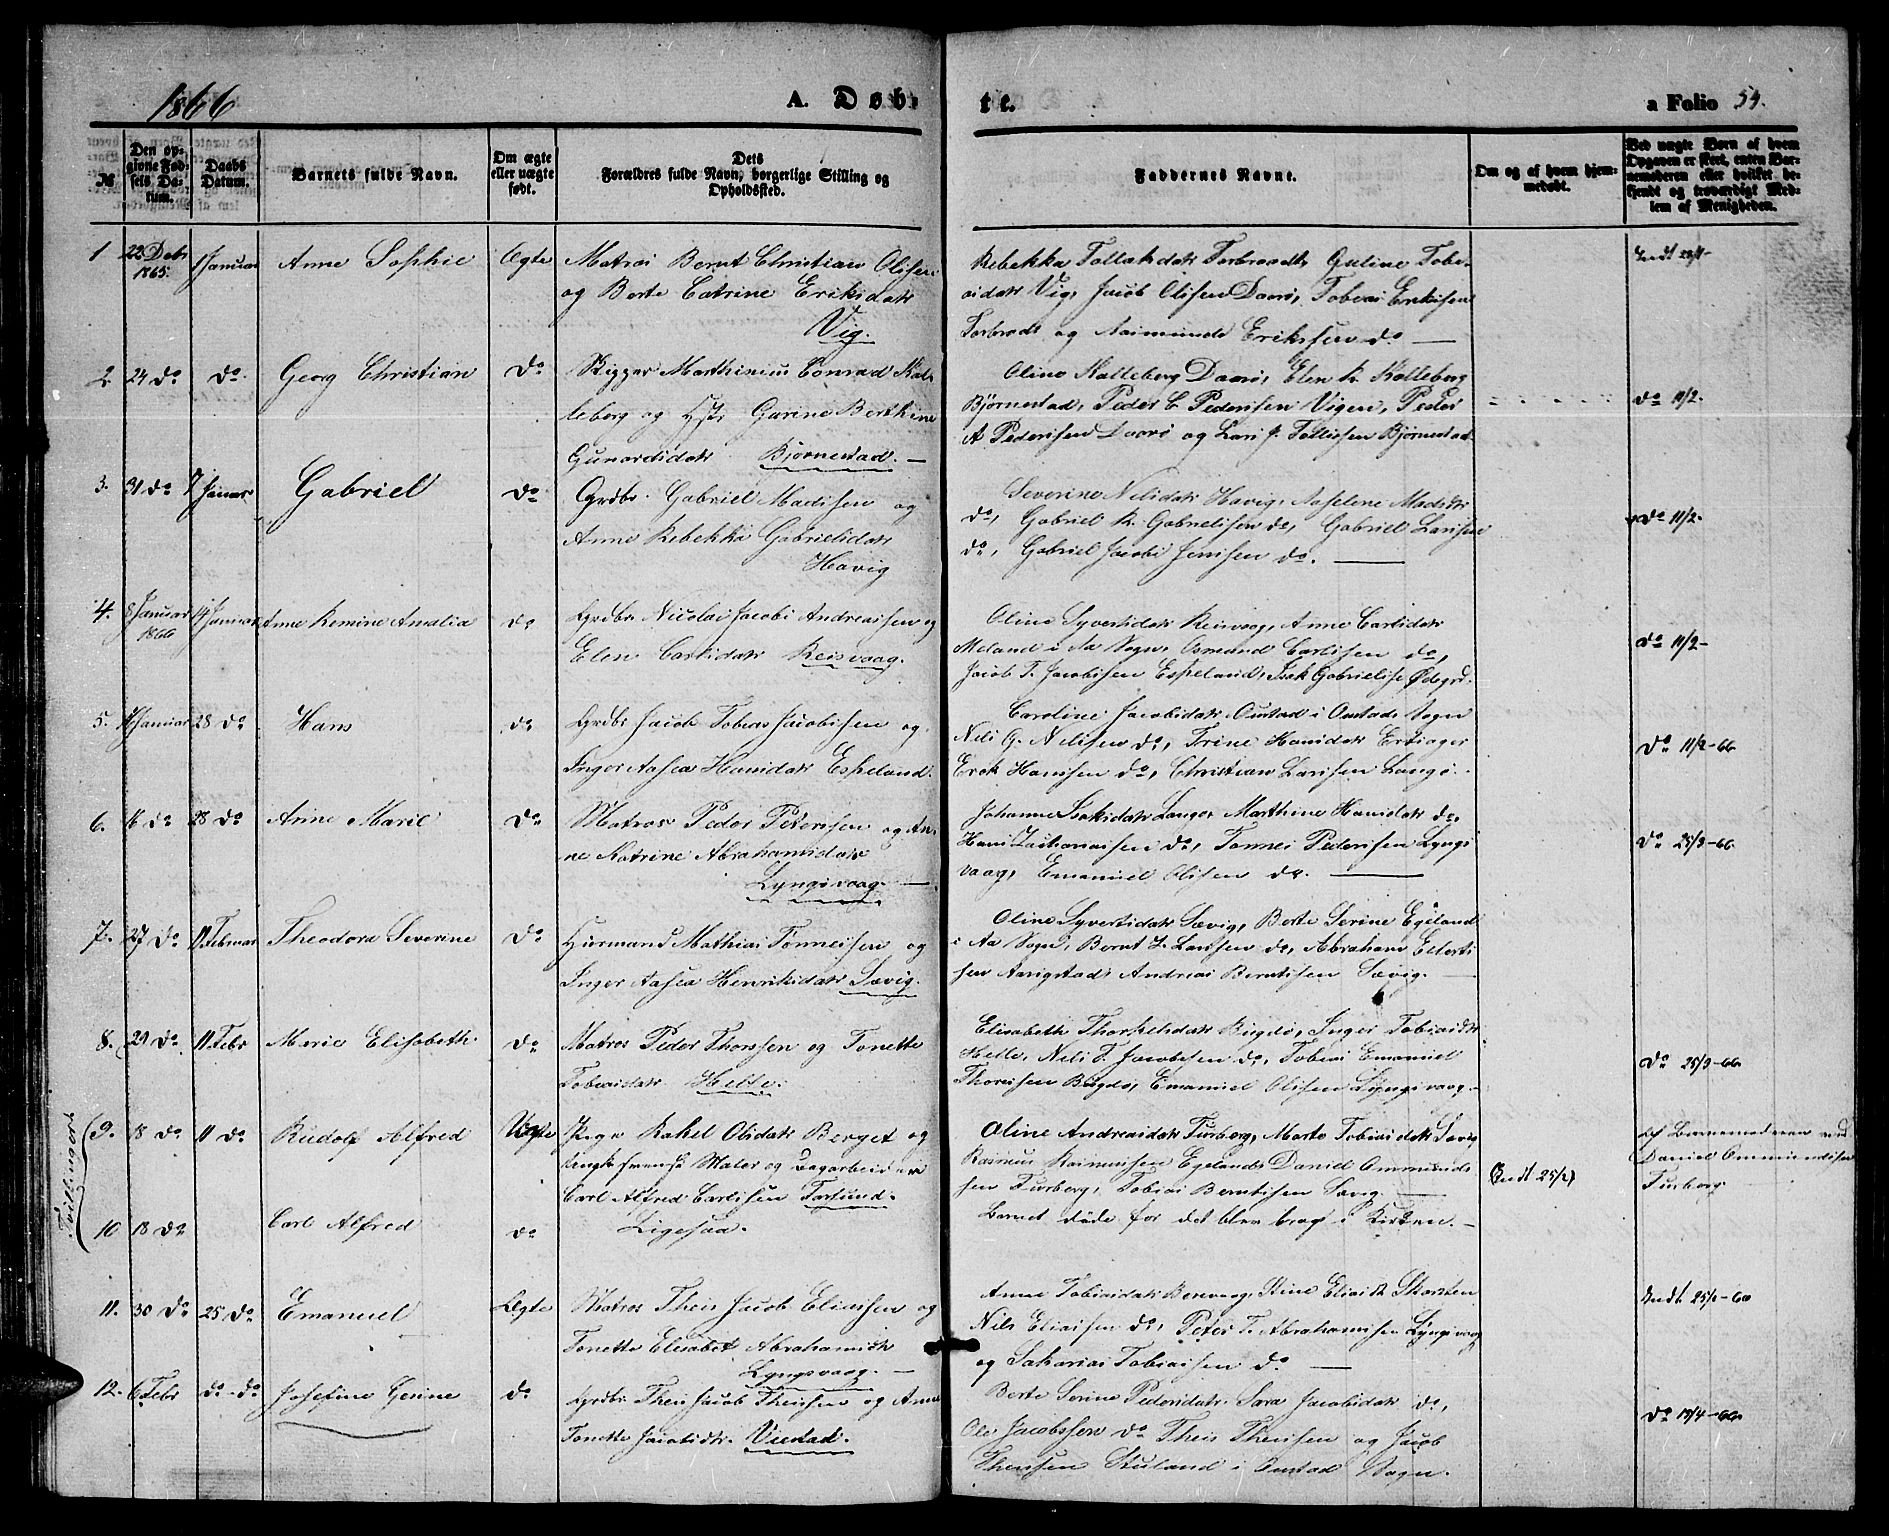 1866
A. Døb-
te.
a Folio 54.
№
Den op-
givne Fød-
sels Da-
tum.
Daabs
Datum.
Barnets fulde Navn.
Om ægte
eller uægte
født.
Dets
Forældres fulde Navn, borgerlige Stilling og
Opholdssted.
Faddernes Navne.
Om og af hvem hjem-
medøbt.
Ved uægte Børn af hvem
Opgaven er skeet, enten Bar-
nemoderen eller hvilket be-
kjendt og troværdigt Med-
lem af Menigheden.
1
22 Debr
1865
1 Januar
Anne Sophie
Ægte
Matros Bernt Christian Olsen
og Berte Catrine Eriksdatr
Vig.
Rebekka Tollaksdatr Guline Tobi-
asdatr Vig, Jacob Olsen Tobias Eriksen
og Eriksen do
Indt
2.
24 do
do
Georg Christian
do
Skipper Marthinius Conrad Kal-
leberg og Hst. Gurine Berthine
Gunardsdatr Bjørnestad.
Oline Kalleberg Elen K. Kalleberg
Bjørnestad, Peder C. Pedersen Vigen, Peder
A Pedersen og Lars J. Bjørnestad
do 11/2.
3.
31 do
7 Januar
Gabriel
do
Grdbr. Gabriel Madsen og
Anne Rebekka Gabrielsdatr
Havig
Severine Nilsdatr Havig, Aaselene Madsdtr
do, Gabriel R. Gabrielsen do, Gabriel Larsen
do, Gabriel Jacob Jensen do.
do 11/2.
4.
8 Januar
1866
14 Januar
Anne Remine Analia
do
Grdbr Nicolai Jacob Andreassen og
Elen Carlsdatr Reisvaag.
Oline Syvertsdatr Reisvaag, Anne Carlsdatr
Meland i Aa Sogn, Osmund Carlsen do,
Jacob T. Jacobsen Espeland, Isak Gabrielsen Ødegrd.
do 11/2
5.
Januar
28 do
Hans
do
Grdbr Jacob Tobias Jacobsen og
Inger Aasea Hansdatr Espeland.
Caroline Jacobsdatr Oustad i Oustads Sogn
Nils G. Nilsen do, Trine Hansdatr
Erik Hansen do, Christian Larsen Langø.
do 11/2-66
6.
16 do
28 do
Anne Marie
do
Matros Peder Petersen og An-
ne Katrine Abrahamsdatr
Lyngsvaag.
Johanne Isaksdatr Langø, Marthine Hansdatr do,
Hans Zachariassen do, Tønnes Pedersen Lyngs
vaag, Emanuel Olsen do.
do 25/3-66.
7.
27 do
11 Februar
Theodora Severine
do
Huusmand Mathias Tønnesen og
Inger Aasea Henriksdatr Sævig.
Oline Syvertsdatr Sævig, Berte Serine Egeland
i Aa Sogn, Bernt L. Larsen do, Abraham Eilerts
sen Andreas Berntsen Sævig.
8.
29 do
11 Febr
Marie Elisabeth
do
Matros Peder Thorsen og Tonette
Tobiasdatr Helle.
Elisabeth Inger Tobiasdtr
Helle, Nils T. Jacobsen do, Tobias Emanuel
Thorsen Emanuel Olsen Lyngsvaag.
do 25/3-66.
Tvillinger
9.
18 do
11 do
Rudolf Alfred
Uægte
Pige Rakel Olsdatr Berget og
Ungk. svensk Maler og Dagarbeider
Carl Alfred Carlsen Farsund.
Oline Andreasdatr Furberg, Marte Tobiasdatr Sævig
Rasmus Rasmusen Egeland Daniel Ommunds
sen Furberg, Tobias Berntsen Sævig.
(Indt 25/2)
af Barnemoderen ved
Daniel Ommundsen
Furberg
10
18 do
Carl Alfred
do
Ligesaa.
Barnet døde før det blev bragt i Kirken.
11.
30 do
25 do
Emanuel
Ægte
Matros Theis Jacob Eliassen og
Tonette Elisabet Abrahamsdtr
Lyngsvaag.
Anne Tobiasdatr Stine Eliasdtr
Nils Eliassen do, Peter T. Abrahamsen Lyngsvaag
og Sakarias Tobiassen do
Indt.
12.
6 Febr
do-do
Josefine Gesine
do
Grdbr Theis Jacob Theissen og Anne
Tonette Jacobsdtr. Viestad.
Berte Serine Pedersdatr. Sara Jacobsdatr do,
Ole Jacobssen do Theis Theissen og Jacob
Theissen Stuland i Oustad Sogn.
do